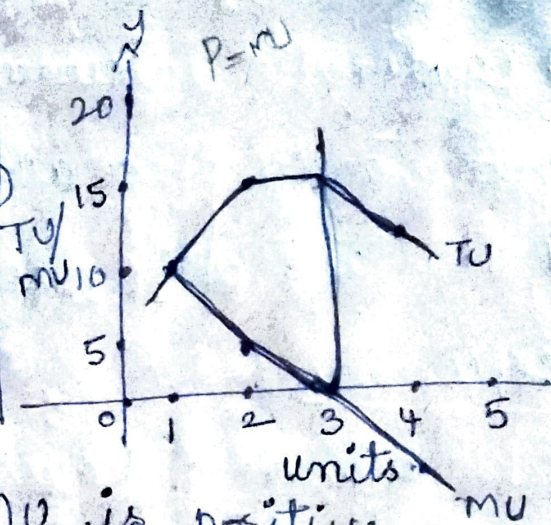 y
P=MU
20
15
TU/
MU
10
TU
5
0 1 2 3 4 5
units
MU
MU is positive